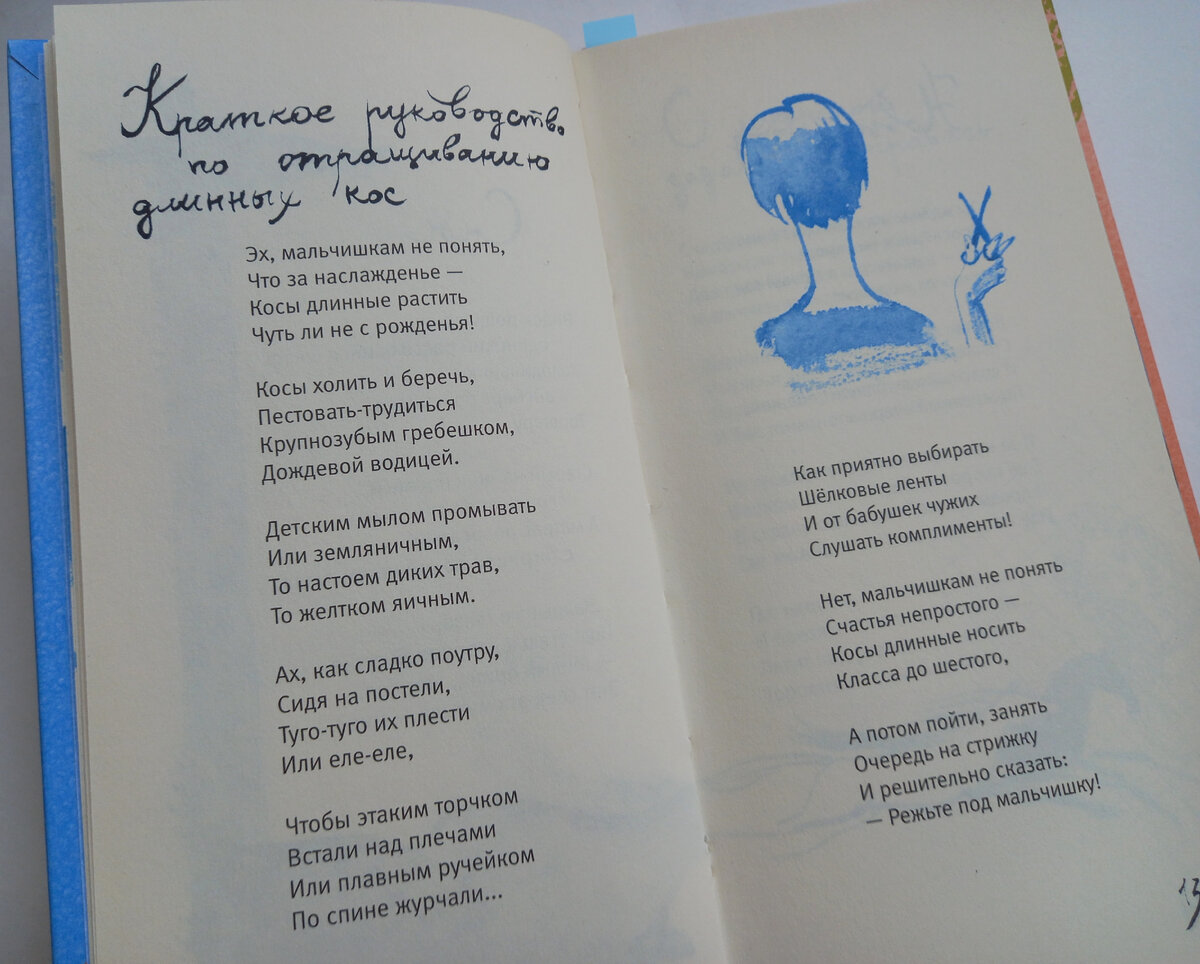 Краткое руководство
по отращиванию
длинных кос
Эх, мальчишкам не понять,
Что за наслажденье —
Косы длинные растить
Чуть ли не с рожденья!
Косы холить и беречь,
Пестовать-трудиться
Крупнозубым гребешком,
Дождевой водицей.
Детским мылом промывать
Или земляничным,
То настоем диких трав,
То желтком яичным.
Ах, как сладко поутру,
Сидя на постели,
Туго-туго их плести
Или еле-еле,
Чтобы этаким торчком
Встали над плечами
Или плавным ручейком
По спине журчали...
Как приятно выбирать
Шёлковые ленты
И от бабушек чужих
Слушать комплименты!
Нет, мальчишкам не понять
Счастья непростого —
Косы длинные носить
Класса до шестого,
А потом пойти, занять
Очередь на стрижку
И решительно сказать:
— Режьте под мальчишку!